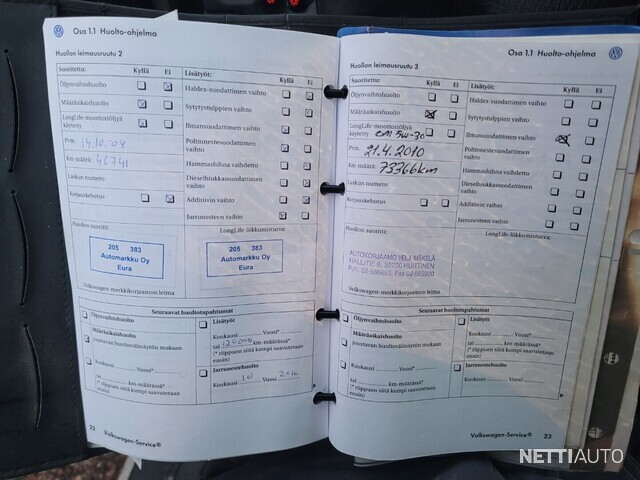 Osa 1.1 Huolto-ohjelma
Huollon leimausruutu 2
Suoritettu: Kyllä Ei
Öljynvaihtohuolto
Määräaikaishuolto
LongLife-moottoriöljyä
käytetty
Pvm. 14.10.
Km-määrä: 46741
Luukun numero:
Korjauskehotus
Lisätyöt: Kyllä Ei
Haldex-suodattimen vaihto
Sytytystulppien vaihto
Ilmansuodattimen vaihto
Polttonestesuodattimen
vaihto
Hammashihna vaihdettu
Dieselhiukkassuodattimen
vaihto
Additiivin vaihto
Jarrunesteen vaihto
Huollon suoritti:
LongLife-liikkumisturva:
205 383
Automarkku Oy
Eura
205 383
Automarkku Oy
Eura
Volkswagen-merkkikorjaamon leima
Seuraavat huoltotapahtumat
Öljynvaihtohuolto
Määräaikaishuolto
joustavan huoltovälinäytön mukaan
Kuukausi Vuosi*
tai km-määrässä*
(* riippuen siitä kumpi saavutetaan
ensin)
Lisätyöt
Kuukausi Vuosi*
tai 120000 km-määrässä*
(* riippuen siitä kumpi saavutetaan
ensin)
Jarrunestehuolto
Kuukausi 10 Vuosi 2010
22 Volkswagen-Service®
Osa 1.1 Huolto-ohjelma
Huollon leimausruutu 3
Suoritettu: Kyllä Ei
Öljynvaihtohuolto
Määräaikaishuolto
LongLife-moottoriöljyä
käytetty 5W-30
Pvm. 21.4.2010
Km-määrä: 73366km
Luukun numero:
Korjauskehotus
Lisätyöt: Kyllä Ei
Haldex-suodattimen vaihto
Sytytystulppien vaihto
Ilmansuodattimen vaihto
Polttonestesuodattimen
vaihto
Hammashihna vaihdettu
Dieselhiukkassuodattimen
vaihto
Additiivin vaihto
Jarrunesteen vaihto
Huollon suoritti:
LongLife-liikkumisturva:
AUTOKORJAAMO VELJ. MÄKELÄ
HALLITIE 6, 32700 HUITTINEN
Volkswagen-merkkikorjaamon leima
Seuraavat huoltotapahtumat
Öljynvaihtohuolto
Määräaikaishuolto
joustavan huoltovälinäytön mukaan
Kuukausi Vuosi*
tai km-määrässä*
(* riippuen siitä kumpi saavutetaan
ensin)
Lisätyöt
Kuukausi Vuosi*
tai km-määrässä*
(* riippuen siitä kumpi saavutetaan
ensin)
Jarrunestehuolto
Kuukausi Vuosi
Volkswagen-Service® 23
NETTIAUTO